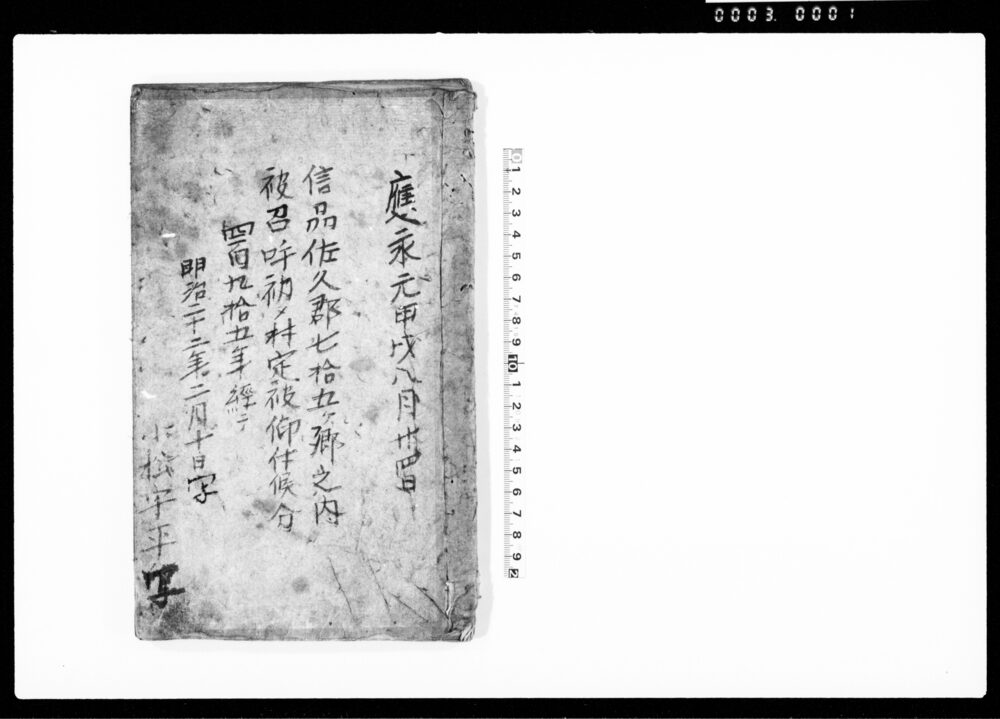 0003.0001
應永元甲戌八月廿四日
信品佐久郡七拾五ヶ郷之内
被召呼初メ村定被仰付候分
四百九拾五年經テ
明治二十二年二月十日写
小松宇平写
0 1 2 3 4 5 6 7 8 9 10 1 2 3 4 5 6 7 8 9 2